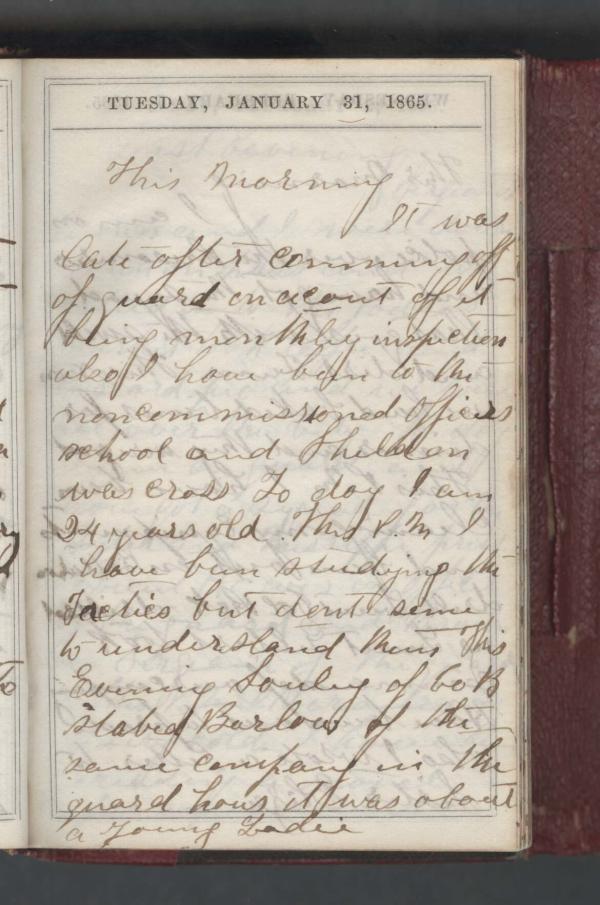 TUESDAY, JANUARY 31, 1865.
This Morning
It was
late after comming off
of guard on acount of it
being monthley inspection
also I have been to the
noncommissioned officers
school and Sheldon
was cross To day I am
24 years old. This P.M I
have been studying the
Tacties but dont seme
to understand them This
Evening of Co B
stabed Barlow of the
same company in the
guard hous it was about
a young Ladie